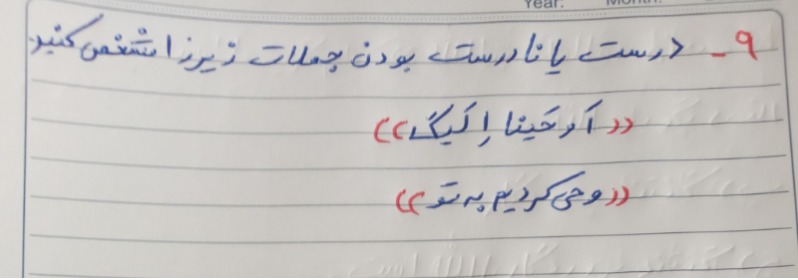 Year: Month:
۹ - درست یا نادرست بودن جملات زیر را مشخص کنید.
(( اَوحَینا اِلَیکَ ))
(( وحی کردیم به تو ))